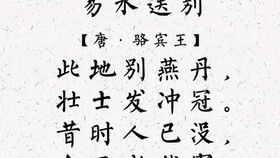 易水送别
【唐·骆宾王】
此地别燕丹，
壮士发冲冠。
昔时人已没，